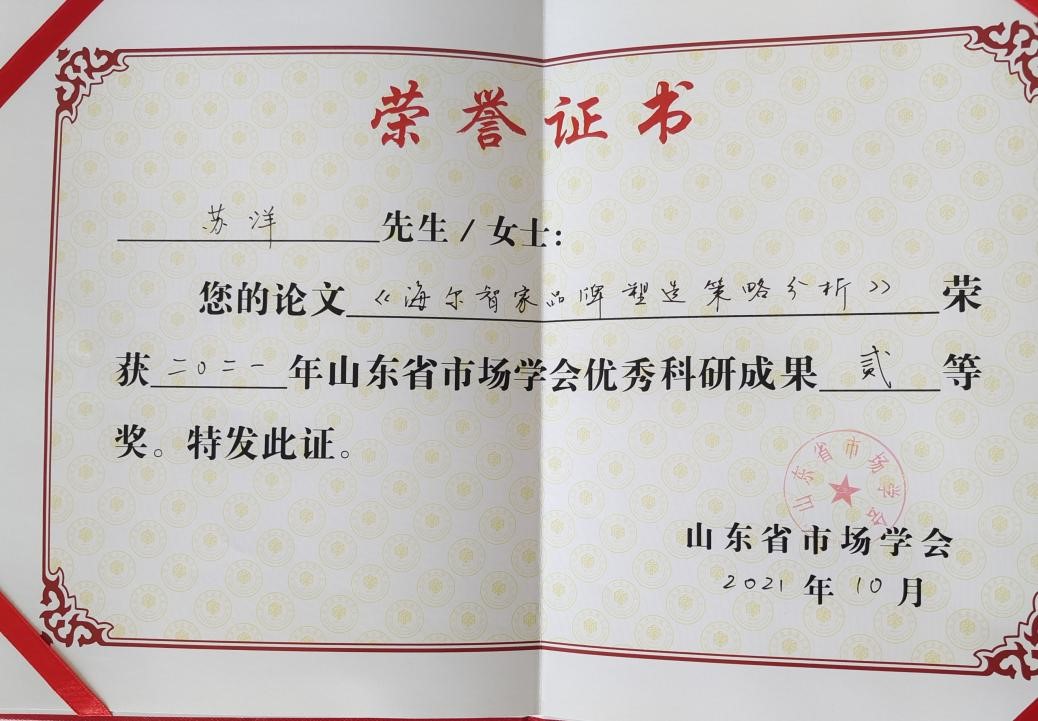 荣誉证书
苏洋先生/女士:
您的论文《海尔智家品牌塑造策略分析》荣
获二〇二一年山东省市场学会优秀科研成果贰等
奖。特发此证。
山东省市场学会
山东省市场学会
2021年10月